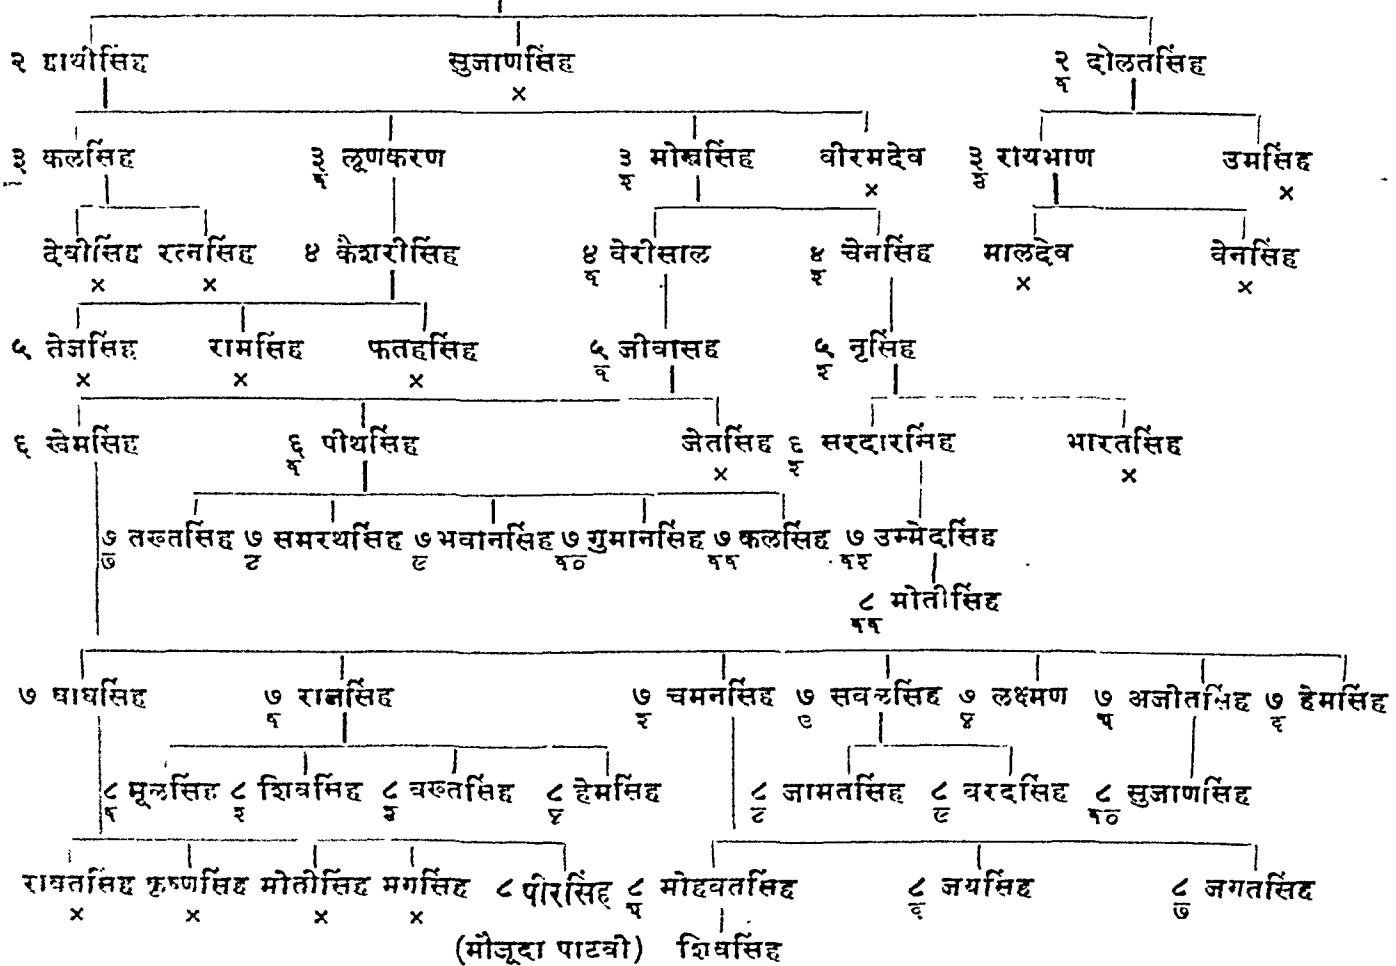 २ हाथीसिंह सुजाणसिंह २/१ दोलतसिंह
×
३ कलसिंह ३/१ लूणकरण ३/२ मोखसिंह वीरमदेव ३/३ रायभाण उमसिंह
× ×
देवीसिंह रत्नसिंह ४ कैशरीसिंह ४/१ वेरीसाल ४/२ चेनसिंह मालदेव वेनसिंह
× × × ×
५ तेजसिंह रामसिंह फतहसिंह ५/१ जीवासह ५/२ नृसिंह
× × ×
६ खेमसिंह ६/१ पीथसिंह जेतसिंह ६/२ सरदारसिंह भारतसिंह
× ×
७/७ तख्तसिंह ७/८ समरथसिंह ७/९ भवानसिंह ७/१० गुमानसिंह ७/११ कलसिंह ७/१२ उम्मेदसिंह
८/११ मोतीसिंह
७ वाघसिंह ७/१ राजसिंह ७/२ चमनसिंह ७/३ सवलसिंह ७/४ लक्ष्मण ७/५ अजीतसिंह ७/६ हेमसिंह
८/१ मूलसिंह ८/२ शिवसिंह ८/३ वख्तसिंह ८/४ हेमसिंह ८/८ जामतसिंह ८/९ वरदसिंह ८/१० सुजाणसिंह
रावतसिंह कृष्णसिंह मोतीसिंह मगसिंह ८ पीरसिंह ८/५ मोहवतसिंह ८/६ जयसिंह ८/७ जगतसिंह
× × × ×
(मौजूदा पाटवी) शिवसिंह